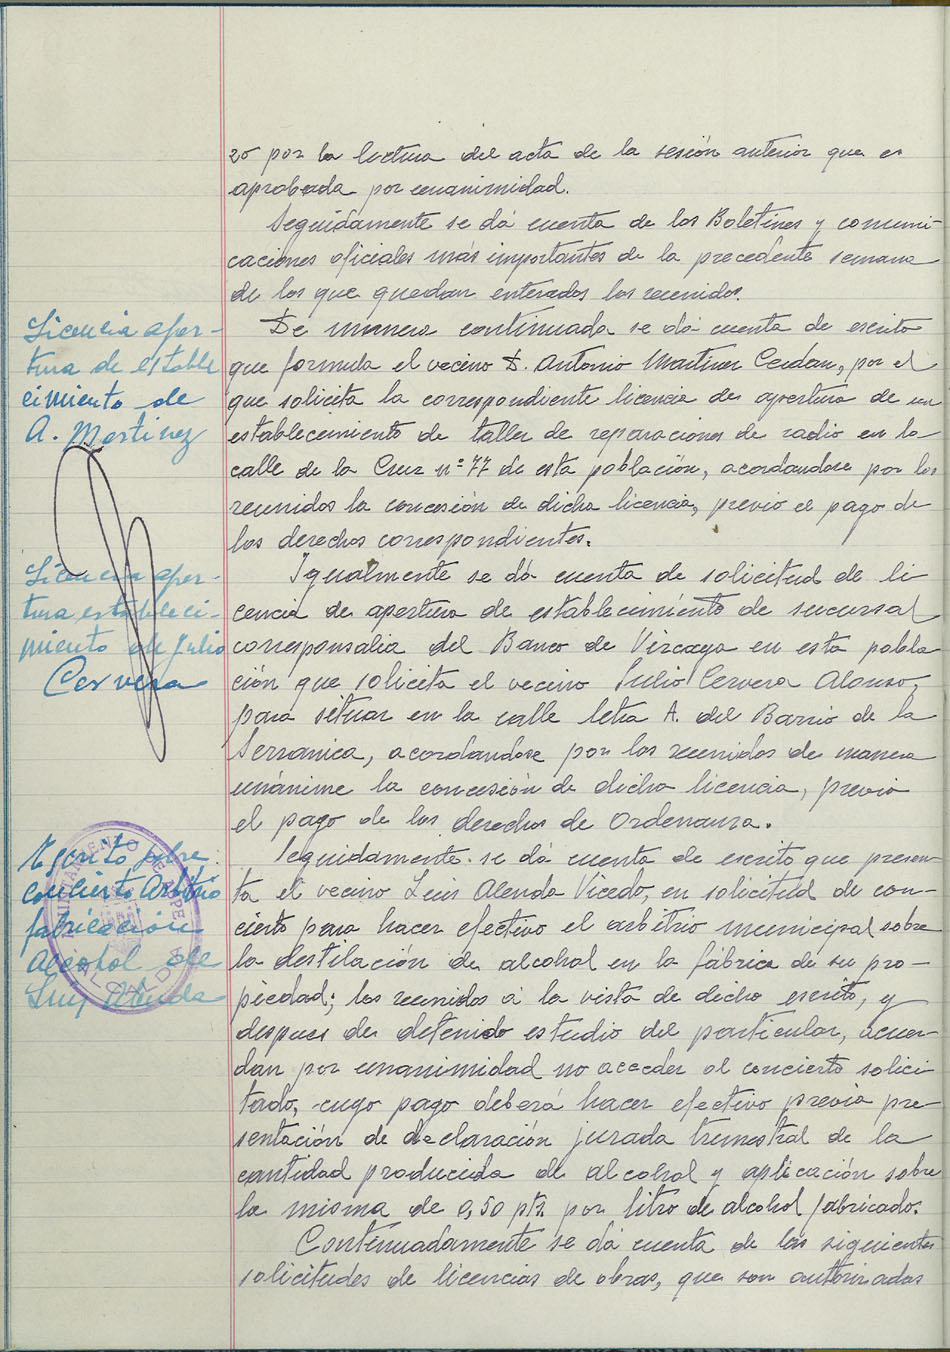 zo por la lectura del acta de la sesión anterior que es
aprobada por unanimidad.
Seguidamente se dá cuenta de los Boletines y comuni-
caciones oficiales más importantes de la precedente semana
de los que quedan enterados los reunidos.
De manera continuada se dá cuenta de escrito
que formula el vecino D. Antonio Martinez Cerdan, por el
que solicita la correspondiente licencia de apertura de un
establecimiento de taller de reparaciones de radio en la
calle de la Cruz nº 77 de esta población, acordandose por los
reunidos la concesión de dicha licencia, previo el pago de
los derechos correspondientes.
Igualmente se dá cuenta de solicitud de li
cencia de apertura de establecimiento de sucursal
corresponsalia del Banco de Vizcaya en esta pobla
ción que solicita el vecino Julio Cervera Alonso,
para situar en la calle letra A. del Barrio de la
Serranica, acordandose por los reunidos de manera
unánime la concesión de dicha licencia, previo
el pago de los derechos de Ordenanza.
Seguidamente se dá cuenta de escrito que presen-
ta el vecino Luis Alenda Vicedo, en solicitud de con-
cierto para hacer efectivo el arbitrio municipal sobre
la destilación de alcohol en la fábrica de su pro-
piedad; los reunidos á la vista de dicho escrito, y
despues de detenido estudio del particular, acuer-
dan por unanimidad no acceder al concierto solici-
tado, cuyo pago deberá hacer efectivo previa pre-
sentación de declaración jurada trimestral de la
cantidad producida de alcohol y aplicación sobre
la misma de 0,50 pts. por litro de alcohol fabricado.
Continuadamente se dá cuenta de las siguientes
solicitudes de licencias de obras, que son autorizadas
Licencia aper-
tura de estable
cimiento de
A. Martinez
Licencia aper-
tura estableci-
miento de Julio
Cervera
Escrito sobre
concierto Arbitrio
fabricación
Alcohol de
Luis Alenda
AYUNTAMIENTO DE ASPE
ALCALDIA